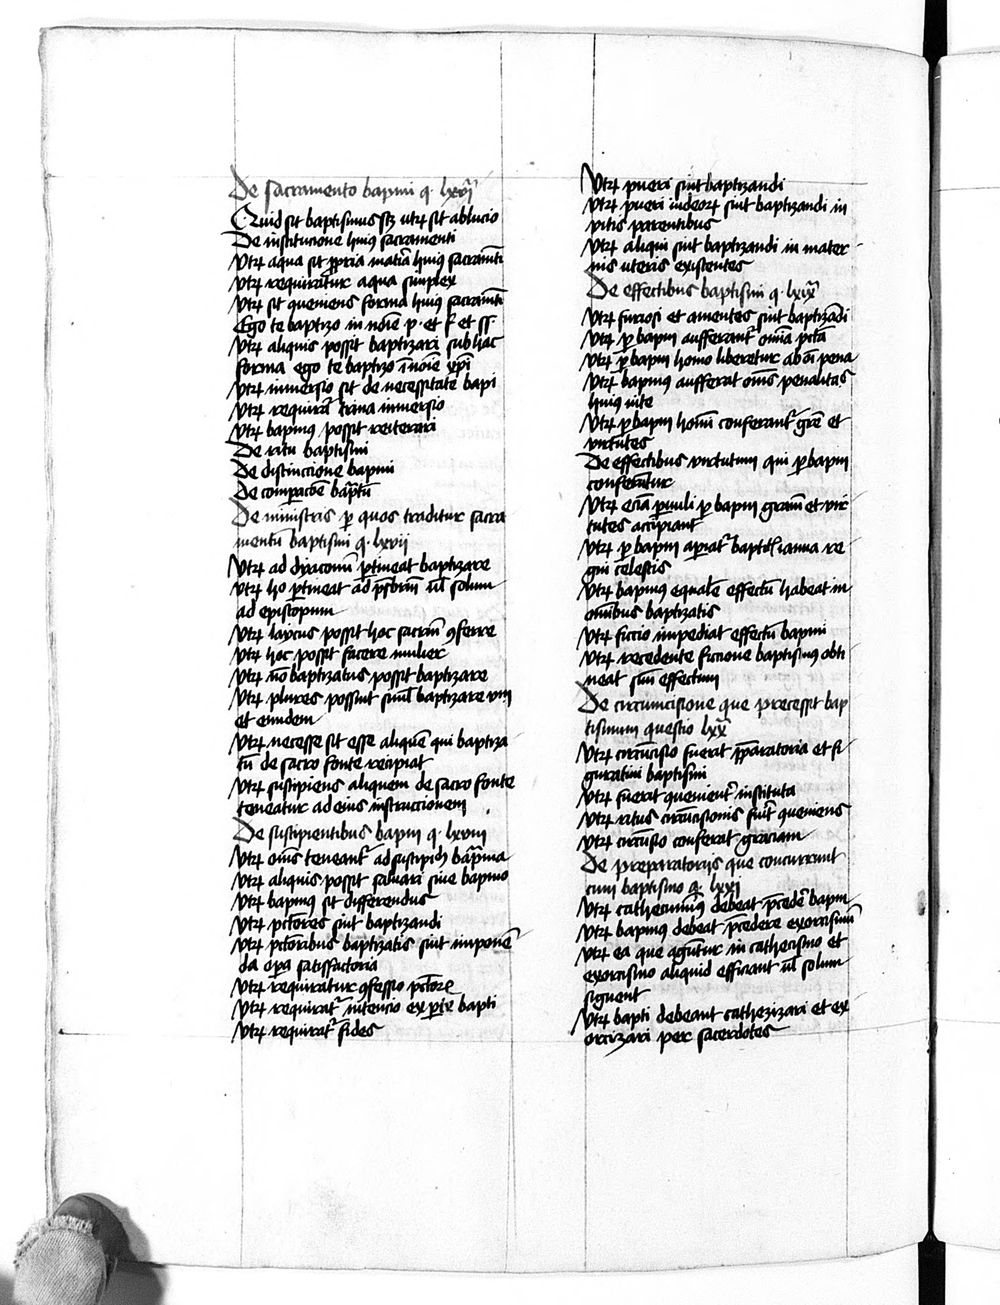 De sacramento bapmi q. lxvj
Quid sit baptismus scz utrũ sit ablucio
De institucione huiꝯ sacramenti
Vtrũ aqua sit ꝓpria matia huiꝯ sacramẽti
Vtrũ requiratur aqua simplex
Vtrũ sit ꝯueniens forma huiꝯ sacramẽti
Ego te baptizo in noie p. et f. et ss.
Vtrũ aliquis possit baptizari sub hac
forma ego te baptizo ĩ noie xpi
Vtrũ inmersio sit de necessitate bapi
Vtrũ requirat͛ trina inmersio
Vtrũ bapmus possit reiterari
De ritu baptismi
De distinccione bapmi
De compacõe baptũ
De ministris ꝑ quos traditur sacra
mentũ baptismi q. lxvii
Vtrũ ad dyaconũ ꝑtineat baptizare
Vtrũ ho ꝑtineat ad p̃sbrm ul̃ solum
ad episcopum
Vtrũ laycus possit hoc sacram̃ ꝯferre
Vtrũ hoc possit facere mulier
Vtrũ nõ baptizatus possit baptizare
Vtrũ plures possint simul baptizare vnũ
et eundem
Vtrũ necesse sit esse aliquẽ qui baptiza
tũ de sacro fonte recipiat
Vtrũ suscipiens aliquem de sacro fonte
teneatur ad eius instruccionem
De suscipientibus bapm q. lxviii
Vtrũ oms̃ teneant͛ ad suscipiẽ bapma
Vtrũ aliquis possit saluari sine bapmo
Vtrũ bapmus sit differendus
Vtrũ pctores sint baptizandi
Vtrũ pctoribus baptizatis sint imponẽ
da opa satisfactoria
Vtrũ requiratur ꝯfessio pctorẽ
Vtrũ requirat͛ intencio ex pte bapti
Vtrũ requirat͛ fides
Vtrũ pueri sint baptizandi
Vtrũ pueri iudeorũ sint baptizandi in
vitis parentibus
Vtrũ aliqui sint baptizandi in mater
nis uteris existentes
De effectibus baptismi q. lxix
Vtrũ furiosi et amentes sint baptizãdi
Vtrũ ꝑ bapm aufferant͛ omia pctã
Vtrũ ꝑ bapm homo liberetur ab oi pena
Vtrũ bapmus aufferat oms̃ penalitas
huiꝯ uite
Vtrũ ꝑ bapm homĩ conferant͛ gre et
virtutes
De effectibus virtutum qui ꝑ bapm
conferũtur
Vtrũ eciã puuli ꝑ bapm gram et vir
tutes accipiant
Vtrũ ꝑ bapm apiat͛ baptis ianua re
gni celestis
Vtrũ bapmus equalẽ effectũ habeat in
omibus baptizatis
Vtrũ ficcio impediat effectũ bapmi
Vtrũ recedente ficcione baptismꝯ obti
neat suũ effectum
De circumcisione que precessit bap
tismum questio lxx
Vtrũ circũcisio fuerit ꝓparatoria et fi
guratiui baptismi
Vtrũ fuerit ꝯuenient͛ instituta
Vtrũ ritus circũcisionis fuit ꝯueniens
Vtrũ circũcisio conferat graciam
De preparatorijs que concurrunt
cum baptismo q. lxxj
Vtrũ cathecumꝯ debeat pcedẽ bapm
Vtrũ bapmus debeat p̃cedere exorcismũ
Vtrũ ea que agũtur in cathecismo et
exorcismo aliquid efficiant ul̃ solum
signent
Vtrũ bapti debeant cathezizari et ex
orcizari per sacerdotes